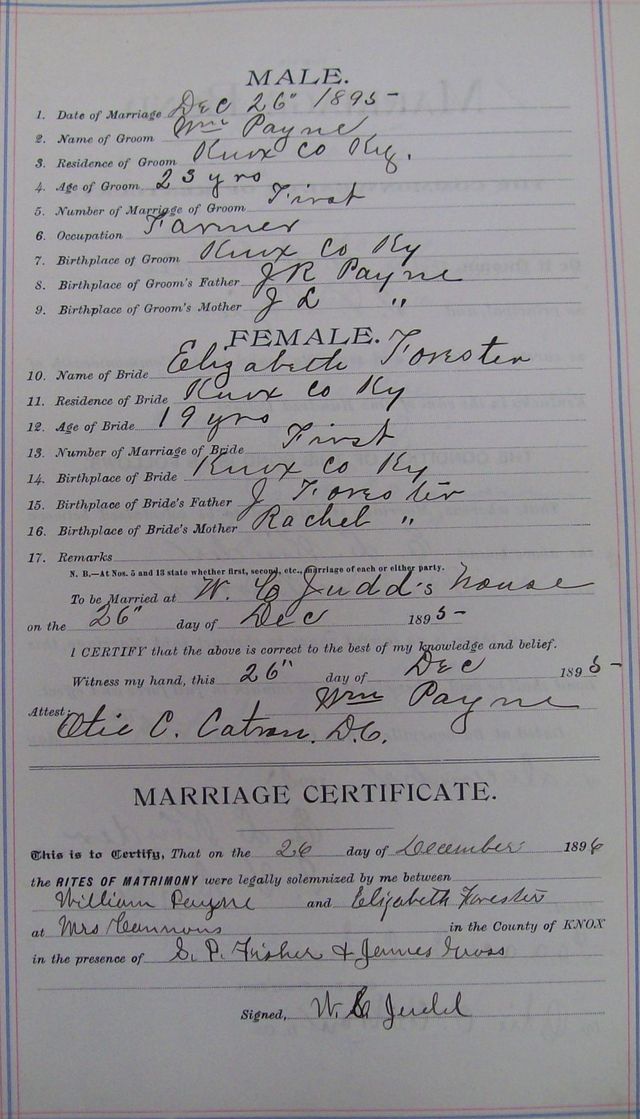 MALE.
1. Date of Marriage Dec 26" 1895
2. Name of Groom Wm Payne
3. Residence of Groom Knox Co Ky.
4. Age of Groom 23 yrs
5. Number of Marriage of Groom First
6. Occupation Farmer
7. Birthplace of Groom Knox Co Ky
8. Birthplace of Groom's Father J R Payne
9. Birthplace of Groom's Mother J L "
FEMALE.
10. Name of Bride Elizabeth Forester
11. Residence of Bride Knox Co Ky
12. Age of Bride 19 yrs
13. Number of Marriage of Bride First
14. Birthplace of Bride Knox Co Ky
15. Birthplace of Bride's Father J Forester
16. Birthplace of Bride's Mother Rachel "
17. Remarks
N. B.—At Nos. 5 and 13 state whether first, second, etc., marriage of each or either party.
To be Married at W. C Judd's house
on the 26" day of Dec 1895
I CERTIFY that the above is correct to the best of my knowledge and belief.
Witness my hand, this 26" day of Dec 1895
Wm Payne
Attest: Otie C. Catron. D.C.
MARRIAGE CERTIFICATE.
This is to Certify, That on the 26 day of December 1896
the RITES OF MATRIMONY were legally solemnized by me between
William Payne and Elizabeth Forester
at Mrs Cannons in the County of KNOX
in the presence of S. P. Fisher & James Gross
Signed, W. C Judd